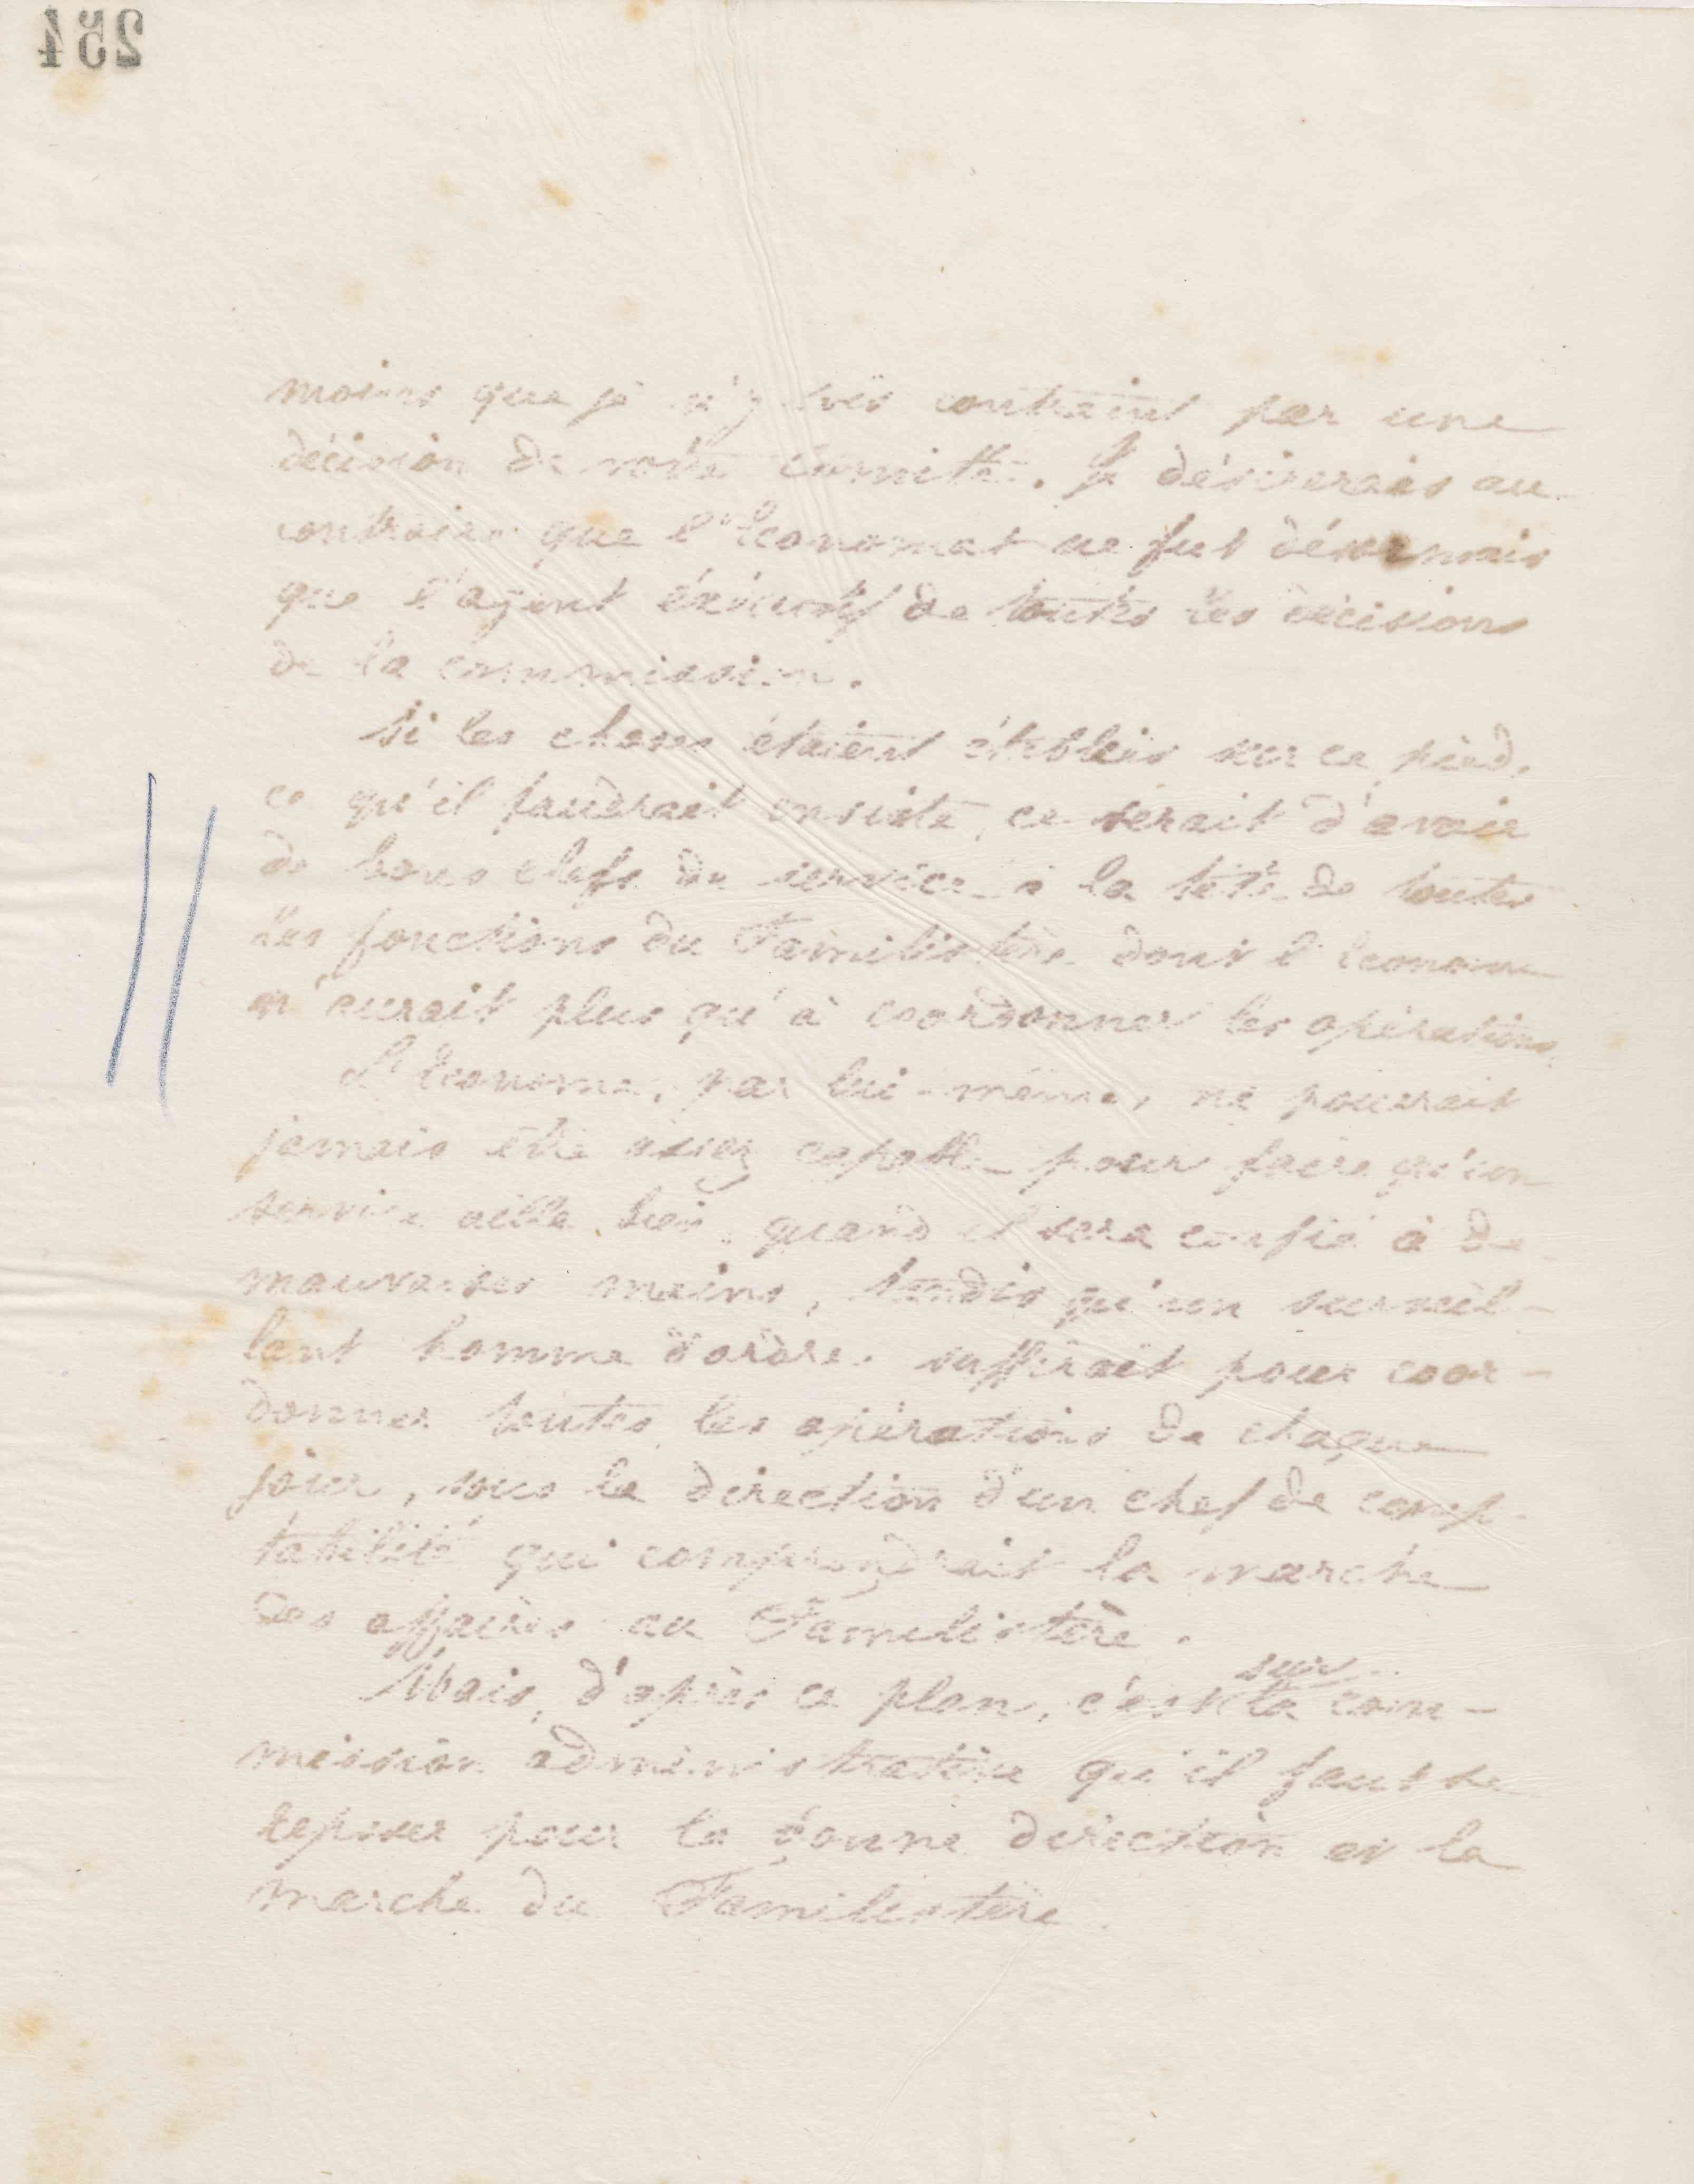 254
moins que je n'y sois contraint par une
décision de votre comité. Je désirerais au
contraire que l'Economat ne fut désormais
que l'agent éxécutif de toutes les décisions
de la commission.
Si les choses étaient établies sur ce pied,
ce qu'il faudrait ensuite, ce serait d'avoir
de bons chefs de service à la tête de toutes
les fonctions du Familistère dont l'économe
n'aurait plus qu'à coordonner les opérations.
L'Econome, par lui-même, ne pourrait
jamais être assez capable pour faire qu'un
service aille bien, quand il sera confié à de
mauvaises mains, tandis qu'un surveil-
lant homme d'ordre suffirait pour coor-
donner toutes les opérations de chaque
jour, sous la direction d'un chef de comp-
tabilité qui comprendrait la marche
des affaires au Familistère.
Mais, d'après ce plan, c'est sur la com-
mission administrative qu'il faut se
reposer pour la bonne direction et la
marche du Familistère.